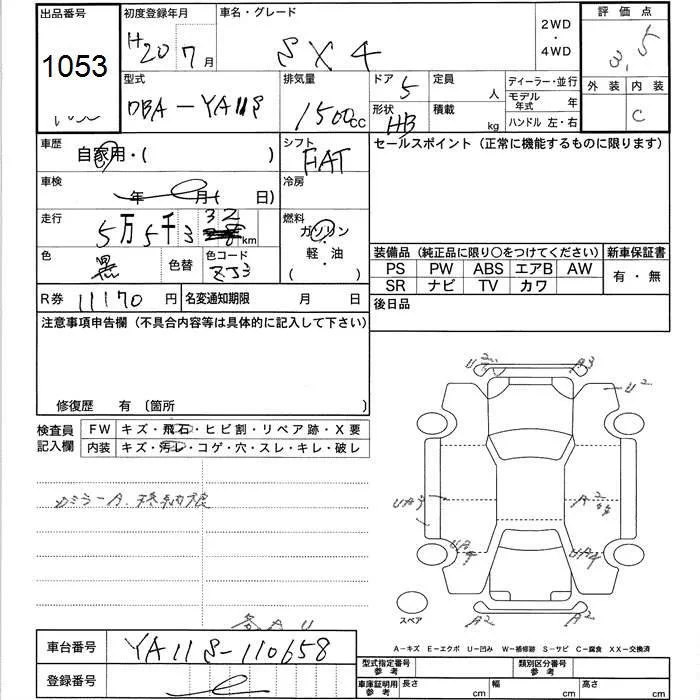 出品番号 初度登録年月 車名・グレード 2WD・4WD 評価点
1053 H20 7月 SX4 3.5
型式 排気量 ドア 5 定員 人 ディーラー・並行 外装 内装
DBA-YA11S 1500cc 形状 HB 積載 kg モデル年式 年 C
ハンドル 左・右
車歴 自家用・( ) シフト FAT セールスポイント (正常に機能するものに限ります)
車検 年 月( 日) 冷房
走行 5万5千3 32 km 燃料 ガソリン・軽油( )
色 黒 色替 色コード ZJ3
装備品 (純正品に限り○をつけてください) 新車保証書
PS PW ABS エアB AW 有・無
SR ナビ TV カワ
R券 11170円 名変通知期限 月 日 後日品
注意事項申告欄 (不具合内容等は具体的に記入して下さい)
修復歴 有 〔箇所 〕
検査員記入欄 FW キズ・飛石・ヒビ割・リペア跡・X要
内装 キズ・汚レ・コゲ・穴・スレ・キレ・破レ
U2 A3 U2
UA3 A2
UA3 UA4
A2 A2
スペア
各AU
A-キズ E-エクボ U-凹み W-補修跡 S-サビ C-腐食 XX-交換済
車台番号 YA11S-110658 型式指定番号 参考 類別区分番号 参考
登録番号 車庫証明用 参考 長さ cm 幅 cm 高さ cm